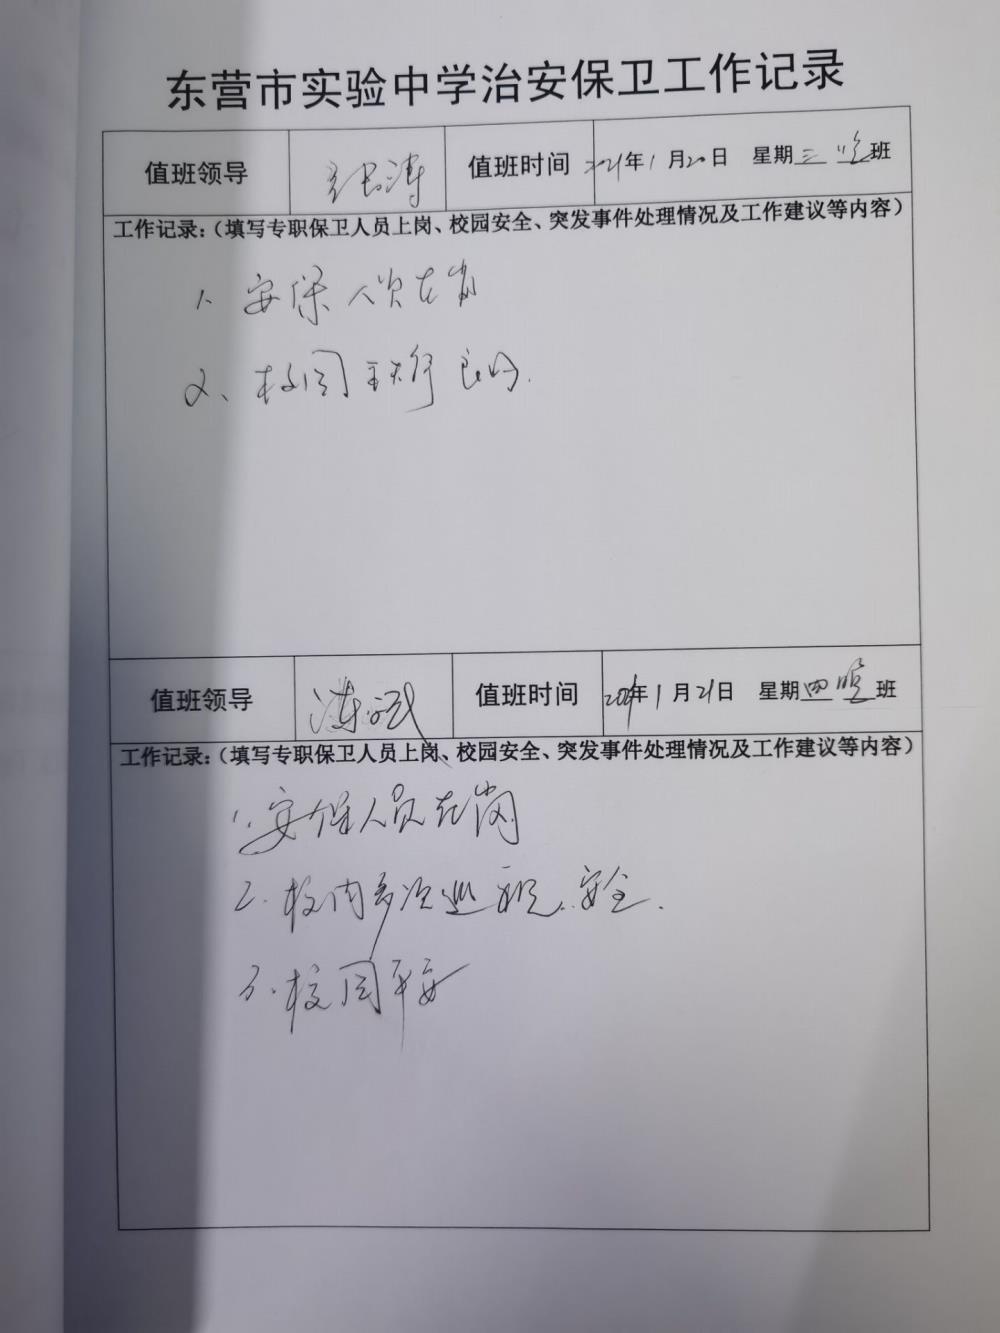 东营市实验中学治安保卫工作记录
值班领导 张涛 值班时间 2021年1月20日 星期三 晚班
工作记录:(填写专职保卫人员上岗、校园安全、突发事件处理情况及工作建议等内容)
1、安保人员在岗
2、校园秩序良好.
值班领导 值班时间 2021年1月21日 星期四 晚班
工作记录:(填写专职保卫人员上岗、校园安全、突发事件处理情况及工作建议等内容)
1、安保人员在岗
2、校内多次巡视、安全.
3、校园平安